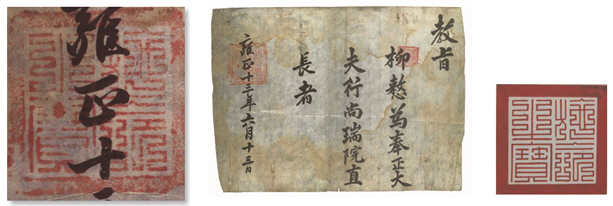 雍正十
教旨
柳 爲奉正大
夫行尚瑞院直
長者
雍正十三年六月十三日